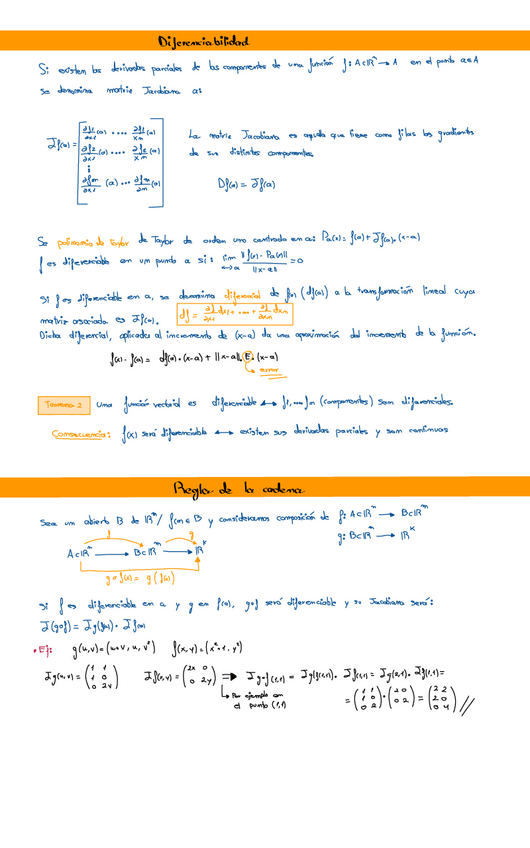 Diferenciabilidad
Si existen las derivadas parciales de las componentes de una función f: A⊂ℝⁿ → A en el punto a∈A
se denomina matriz Jacobiana a:
Jf(a) = [∂f1/∂x1 (a) .... ∂f1/xm (a)
∂f2/∂x1 (a) .... ∂f2/xm (a)
⋮
∂fm/∂x1 (a) ... ∂fm/∂m (a)]
La matriz Jacobiana es aquella que tiene como filas los gradientes
de sus distintas componentes
Df(a) = Jf(a)
Se polinomio de Taylor de Taylor de orden uno centrado en a: Pa(x) = f(a) + Jf(a). (x-a)
f es diferenciable en un punto a si: lim x→a ||f(x) - Pa(x)|| / ||x-a|| = 0
Si f es diferenciable en a, se denomina diferencial de f en (df(a)) a la transformación lineal cuya
matriz asociada es Jf(a). df = ∂f/∂x1 dx1 + ... + ∂f/∂xn dxn
Dicha diferencial, aplicada al incremento de (x-a) da una aproximación del incremento de la función.
f(x) - f(a) = df(a) . (x-a) + ||x-a||. E. (x-a)
error
Teorema 2 una función vectorial es diferenciable ↔ f1, ... fn (componentes) son diferenciables.
Consecuencia: f(x) será diferenciable ↔ existen sus derivadas parciales y son continuas
Regla de la cadena
Sea un abierto B de ℝᵐ / f(a) ∈ B y consideramos composición de f: A⊂ℝⁿ → B⊂ℝᵐ
g: B⊂ℝᵐ → ℝᵏ
f g
A⊂ℝⁿ → B⊂ℝᵐ → ℝᵏ
g∘f(x) = g(f(x))
Si f es diferenciable en a y g en f(a), g∘f será diferenciable y su Jacobiana será:
J(g∘f) = Jg(f(a)) . Jf(a)
• Ej: g(u,v) = (u+v, u, v²) f(x,y) = (x²+1, y²)
Jg(u,v) = (1 1 / 1 0 / 0 2v) Jf(x,y) = (2x 0 / 0 2y) ⟹ Jg∘f(1,1) = Jg(f(1,1)). Jf(1,1) = Jg(2,1). Jf(1,1) =
↳ Por ejemplo en
el punto (1,1)
= (1 1 / 1 0 / 0 2) · (2 0 / 0 2) = (2 2 / 2 0 / 0 4) //